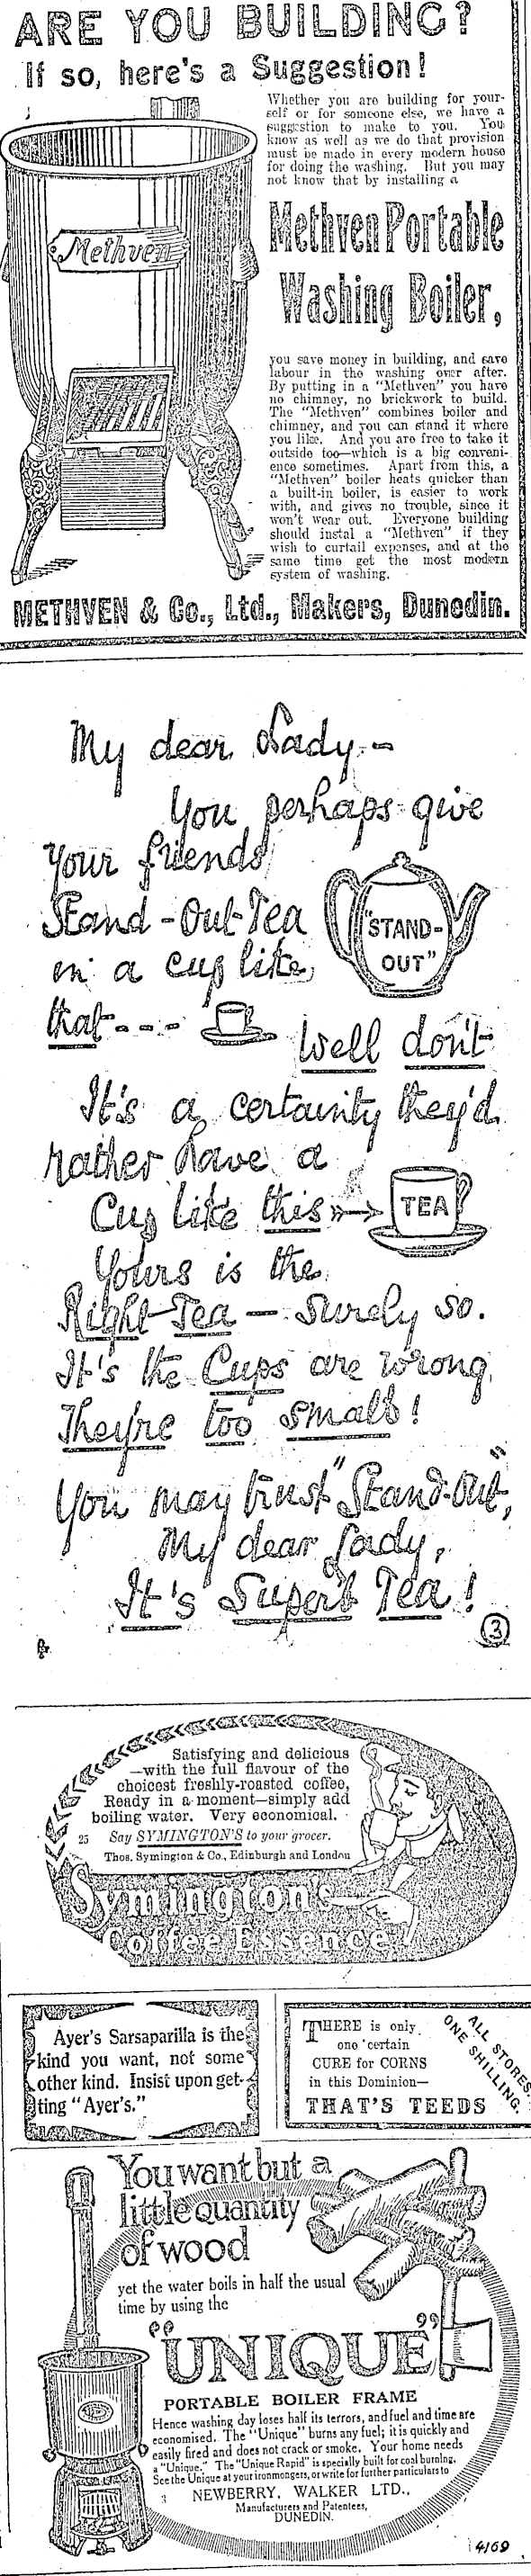 ARE YOU BUILDING?
If so, here's a Suggestion!
Whether you are building for your-
self or for someone else, we have a
suggestion to make to you. You
know as well as we do that provision
must be made in every modern house
for doing the washing. But you may
not know that by installing a
Methven Portable
Washing Boiler,
Methven
you save money in building, and save
labour in the washing over after.
By putting in a "Methven" you have
no chimney, no brickwork to build.
The "Methven" combines boiler and
chimney, and you can stand it where
you like. And you are free to take it
outside too—which is a big conveni-
ence sometimes. Apart from this, a
"Methven" boiler heats quicker than
a built-in boiler, is easier to work
with, and gives no trouble, since it
won't wear out. Everyone building
should instal a "Methven" if they
wish to curtail expenses, and at the
same time get the most modern
system of washing.
METHVEN & Co., Ltd., Makers, Dunedin.
My dear Lady—
You perhaps give
your friends
Stand-Out-Tea
in a cup like
that---
"STAND-
OUT"
Well don't
It's a certainty they'd
rather have a
Cup like this
TEA
Yours is the
Right Tea — surely so.
It's the Cups are wrong
They're too small!
You may trust "Stand-Out",
My dear Lady,
It's Superb Tea!
3
Satisfying and delicious
—with the full flavour of the
choicest freshly-roasted coffee,
Ready in a moment—simply add
boiling water. Very economical.
25 Say SYMINGTON'S to your grocer.
Thos. Symington & Co., Edinburgh and London
Symington's
Coffee Essence
Ayer's Sarsaparilla is the
kind you want, not some
other kind. Insist upon get-
ting "Ayer's."
THERE is only
one certain
CURE for CORNS
in this Dominion—
THAT'S TEEDS
ALL STORES.
ONE SHILLING.
You want but a
little quantity
of wood
yet the water boils in half the usual
time by using the
"UNIQUE"
PORTABLE BOILER FRAME
Hence washing day loses half its terrors, and fuel and time are
economised. The "Unique" burns any fuel; it is quickly and
easily fired and does not crack or smoke. Your home needs
a "Unique." The "Unique Rapid" is specially built for coal burning.
See the Unique at your ironmongers, or write for further particulars to
3 NEWBERRY, WALKER LTD.,
Manufacturers and Patentees,
DUNEDIN.
4169